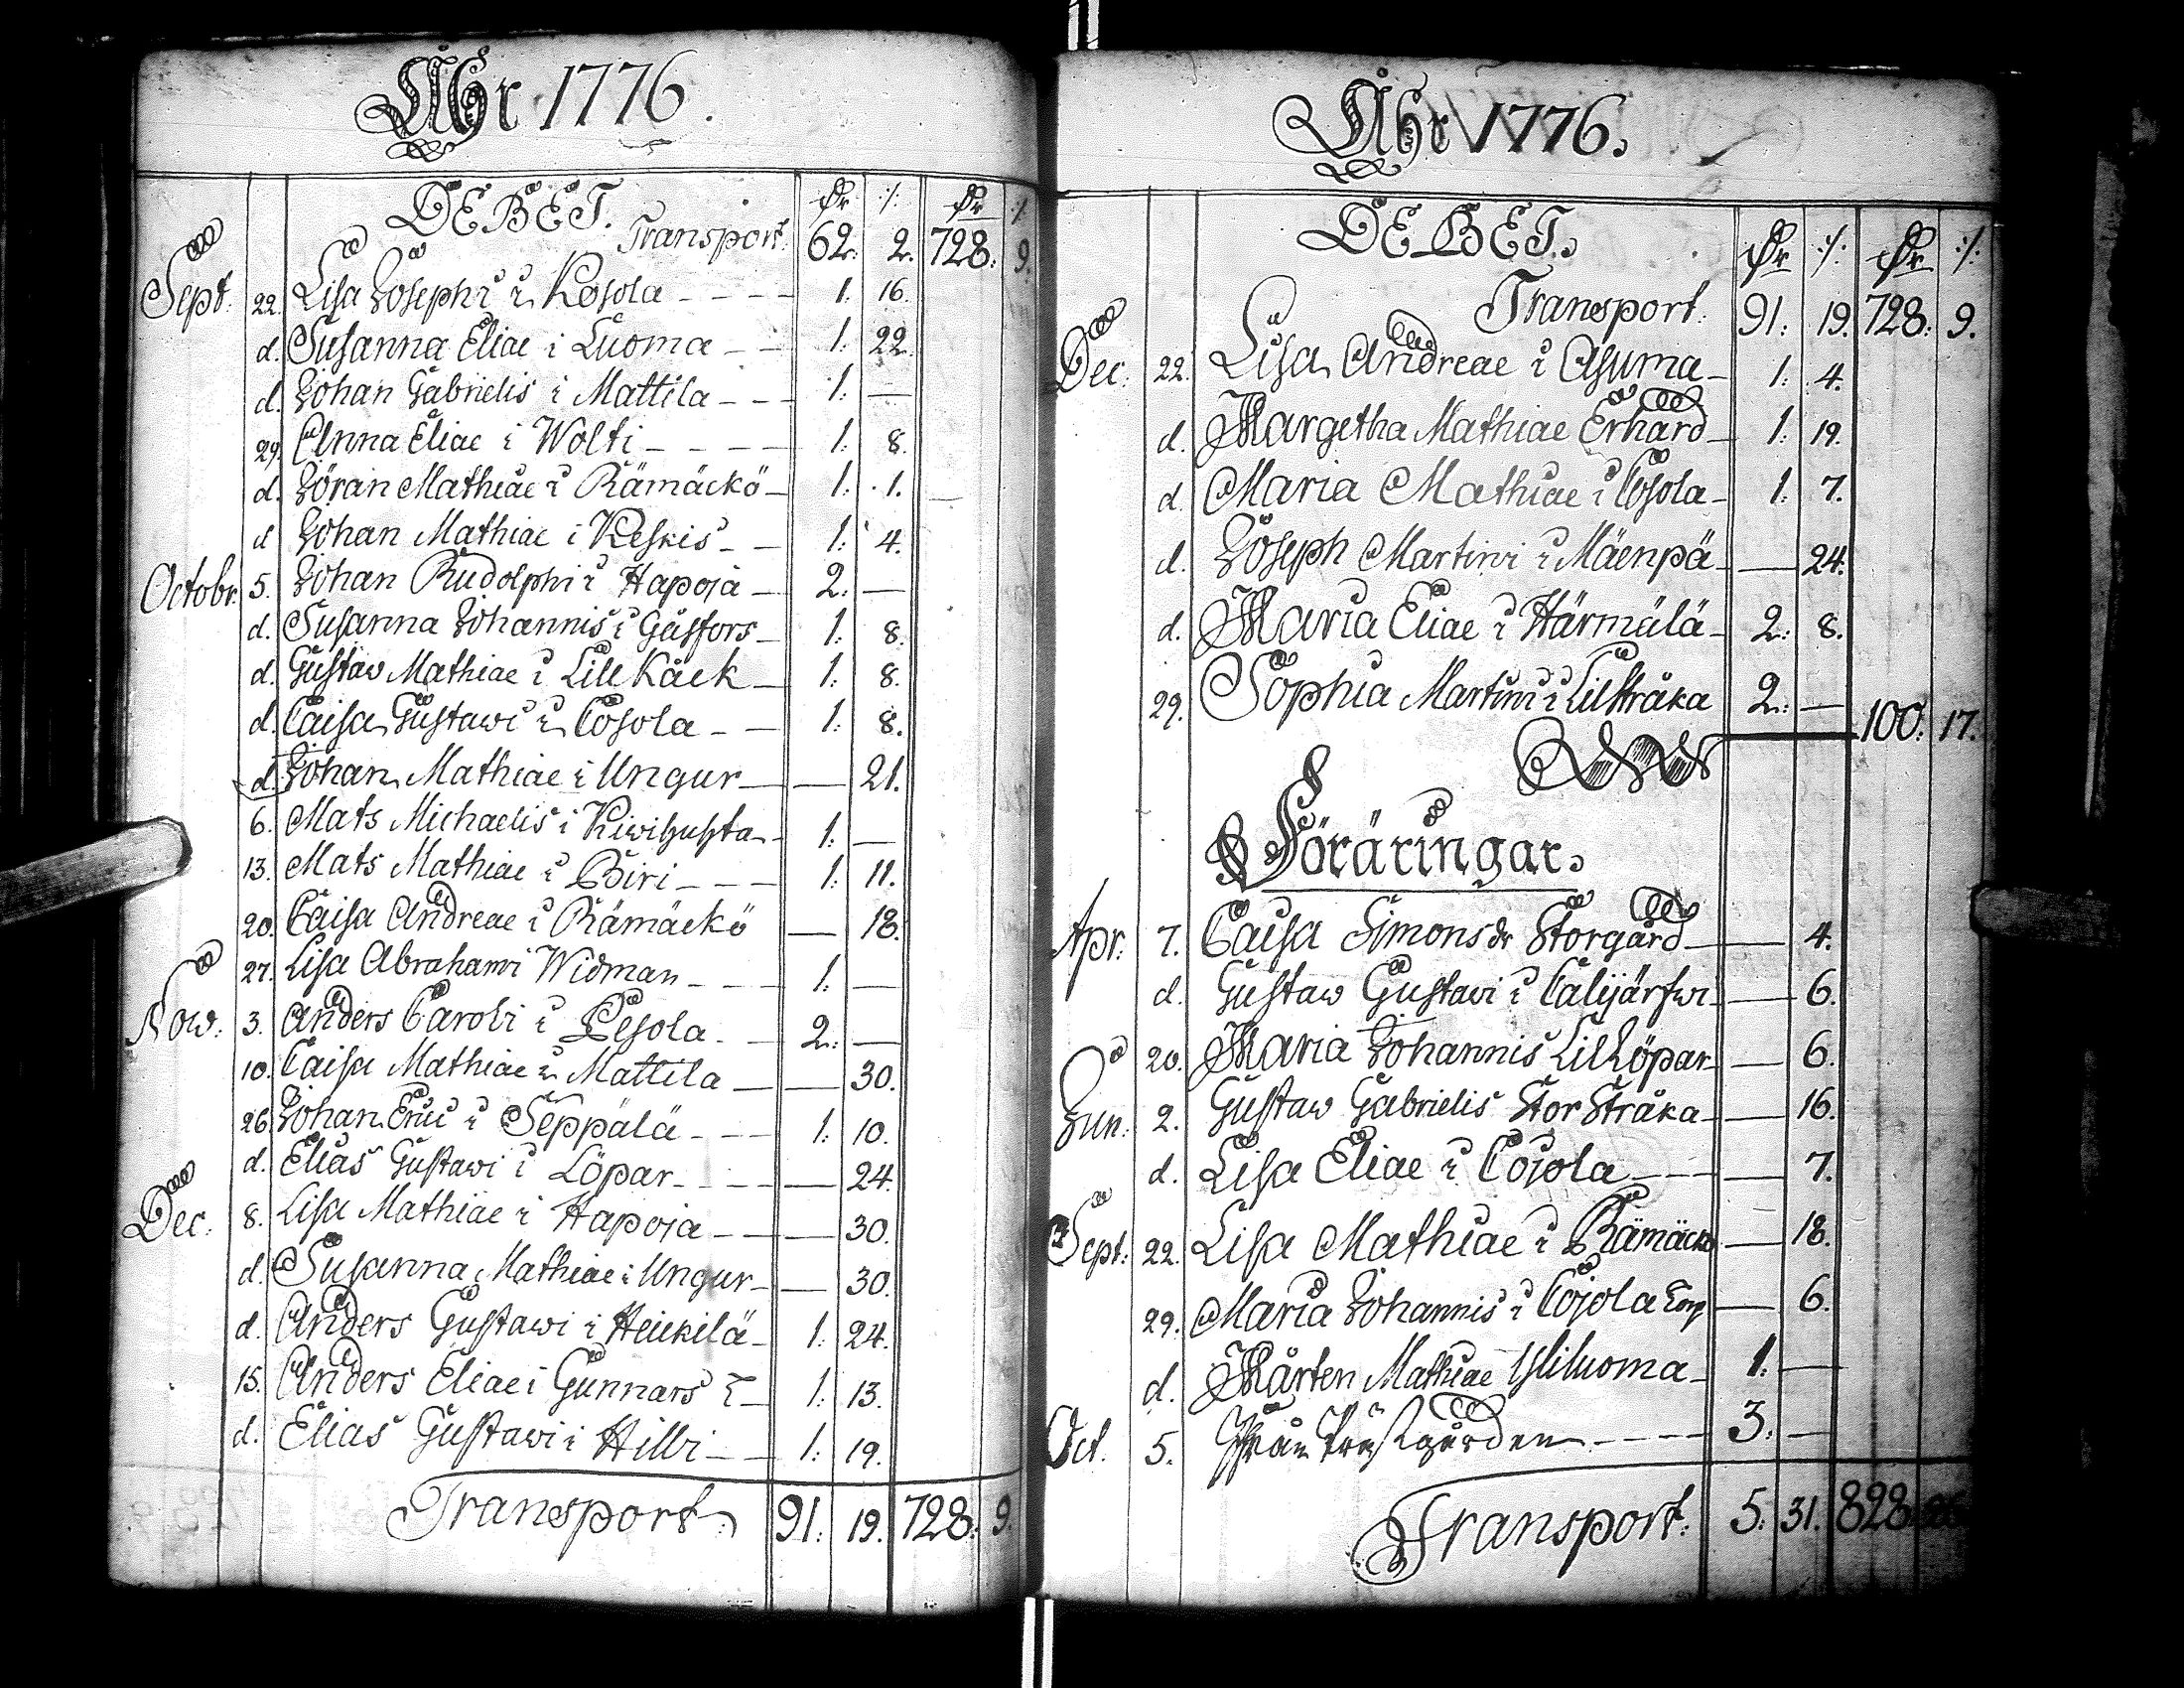 Åhr 1776.
DEBET. Dr :/: Dr :/:
Transport: 62: 2. 728: 9.
Sept: 22. Lisa Josephi i Kosola - - - - 1: 16.
d. Susanna Eliae i Luoma - - 1: 22.
d. Johan Gabrielis i Mattila - - - 1: —
29. Anna Eliae i Wolti - - - - 1: 8.
d. Jöran Mathiae i Rämäckö - 1: 1. —
d Johan Mathiae i Keskis - - 1: 4.
Octobr: 5. Johan Rudolphi i Hapoja - 2: —
d. Susanna Johannis i Gäsfors - 1: 8.
d. Gustav Mathiae i Lill Käck - 1: 8.
d. Caisa Gustawi i Cosola - - 1: 8.
d. Johan Mathiae i Ungur — — 21.
6. Mats Michaelis i Kiwihuhta - 1: —
13. Mats Mathiae i Biri - - - 1: 11.
20. Caisa Andreae i Rämäckö — 18.
27. Lisa Abrahami Widman - - - 1: —
Now: 3. Anders Caroli i Pesola - - 2: —
10. Caisa Mathiae i Mattila — — 30.
26. Johan Erici i Seppälä - - - 1: 10.
d. Elias Gustawi i Löpar - - - - — 24.
Dec: 8. Lisa Mathiae i Hapoja - - — 30.
d. Susanna Mathiae i Ungur - — 30.
d. Anders Gustawi i Heickilä - 1: 24.
15. Anders Eliae i Gunnars - 1: 13.
d. Elias Gustawi i Hilli - - 1: 19.
Transport 91: 19. 728: 9.
Åhr 1776.
DEBET. Dr :/: Dr :/:
Transport: 91: 19. 728: 9.
Dec: 22. Lisa Andreae i Asuma - 1: 4.
d. Margetha Mathiae Erhard - 1: 19.
d. Maria Mathiae i Cosola - 1: 7.
d. Joseph Martini i Mäenpä - — 24.
d. Maria Eliae i Härmälä - 2: 8.
29. Sophia Martini i Lilstråka 2: —
100: 17.
Föräringar.
Apr: 7. Caisa Simons dr Storgård — 4.
d. Gustaw Gustavi i Calijärfwi - — 6.
20. Maria Johannis Lil Löpar - — 6.
Jun: 2. Gustaw Gabrielis Stor Stråka - — 16.
d. Lisa Eliae i Cojola - - - — 7.
Sept: 22. Lisa Mathiae i Rämäckö — 18.
29. Maria Johannis i Cojola Torp — 6.
d. Mårten Mathiae Yliluoma - 1: —
Oct. 5. Ifrån Prästgården - - - - 3: —
Transport: 5: 31. 828: 26